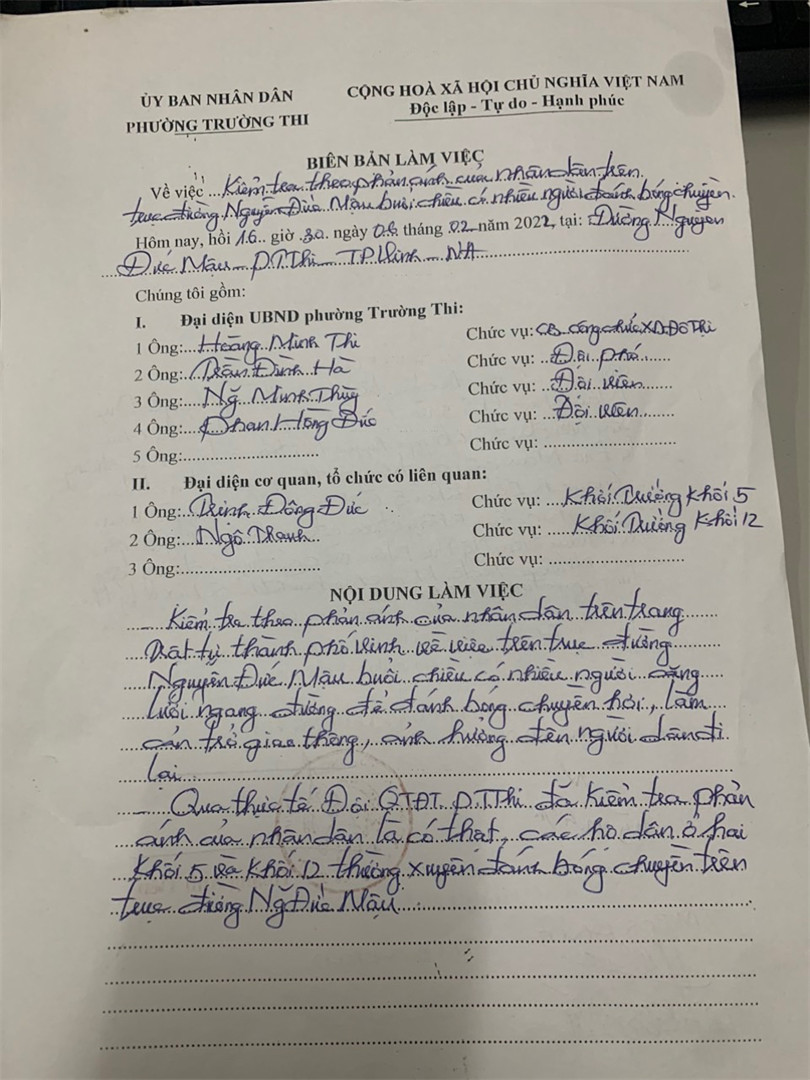 ỦY BAN NHÂN DÂN
PHƯỜNG TRƯỜNG THI
CỘNG HOÀ XÃ HỘI CHỦ NGHĨA VIỆT NAM
Độc lập - Tự do - Hạnh phúc
BIÊN BẢN LÀM VIỆC
Về việc ...Kiểm tra theo phản ánh của nhân dân trên
trục đường Nguyễn Đức Mậu buổi chiều có nhiều người đánh bóng chuyền.
Hôm nay, hồi 16 giờ 30 ngày tháng 02 năm 2022, tại: Đường Nguyễn
Đức Mậu - P.T.Thi - TP Vinh - NA
Chúng tôi gồm:
I. Đại diện UBND phường Trường Thi:
1 Ông:...Hoàng Minh Thi Chức vụ: CB công chức XD.Đô Thị
2 Ông:...Trần Đình Hà Chức vụ: ...Đội phó.......
3 Ông:...Ng Minh Thùy Chức vụ: ...Đội viên.......
4 Ông:...Phan Hồng Đức Chức vụ: ...Đội viên.......
5 Ông:........................... Chức vụ: ...........................
II. Đại diện cơ quan, tổ chức có liên quan:
1 Ông:...Trịnh Đông Đức Chức vụ: ....Khối Trưởng Khối 5
2 Ông:...Ngô Thanh Chức vụ: ......Khối Trưởng Khối 12
3 Ông:........................... Chức vụ: ...........................
NỘI DUNG LÀM VIỆC
Kiểm tra theo phản ánh của nhân dân trên trang
Trật tự thành phố Vinh về việc trên trục đường
Nguyễn Đức Mậu buổi chiều có nhiều người căng
lưới ngang đường để đánh bóng chuyền hơi, làm
cản trở giao thông, ảnh hưởng đến người dân đi
lại
Qua thực tế Đội QTĐT P.T.Thi đã kiểm tra phản
ánh của nhân dân là có thật, các hộ dân ở hai
khối 5 và khối 12 thường xuyên đánh bóng chuyền trên
trục đường Ng Đức Mậu